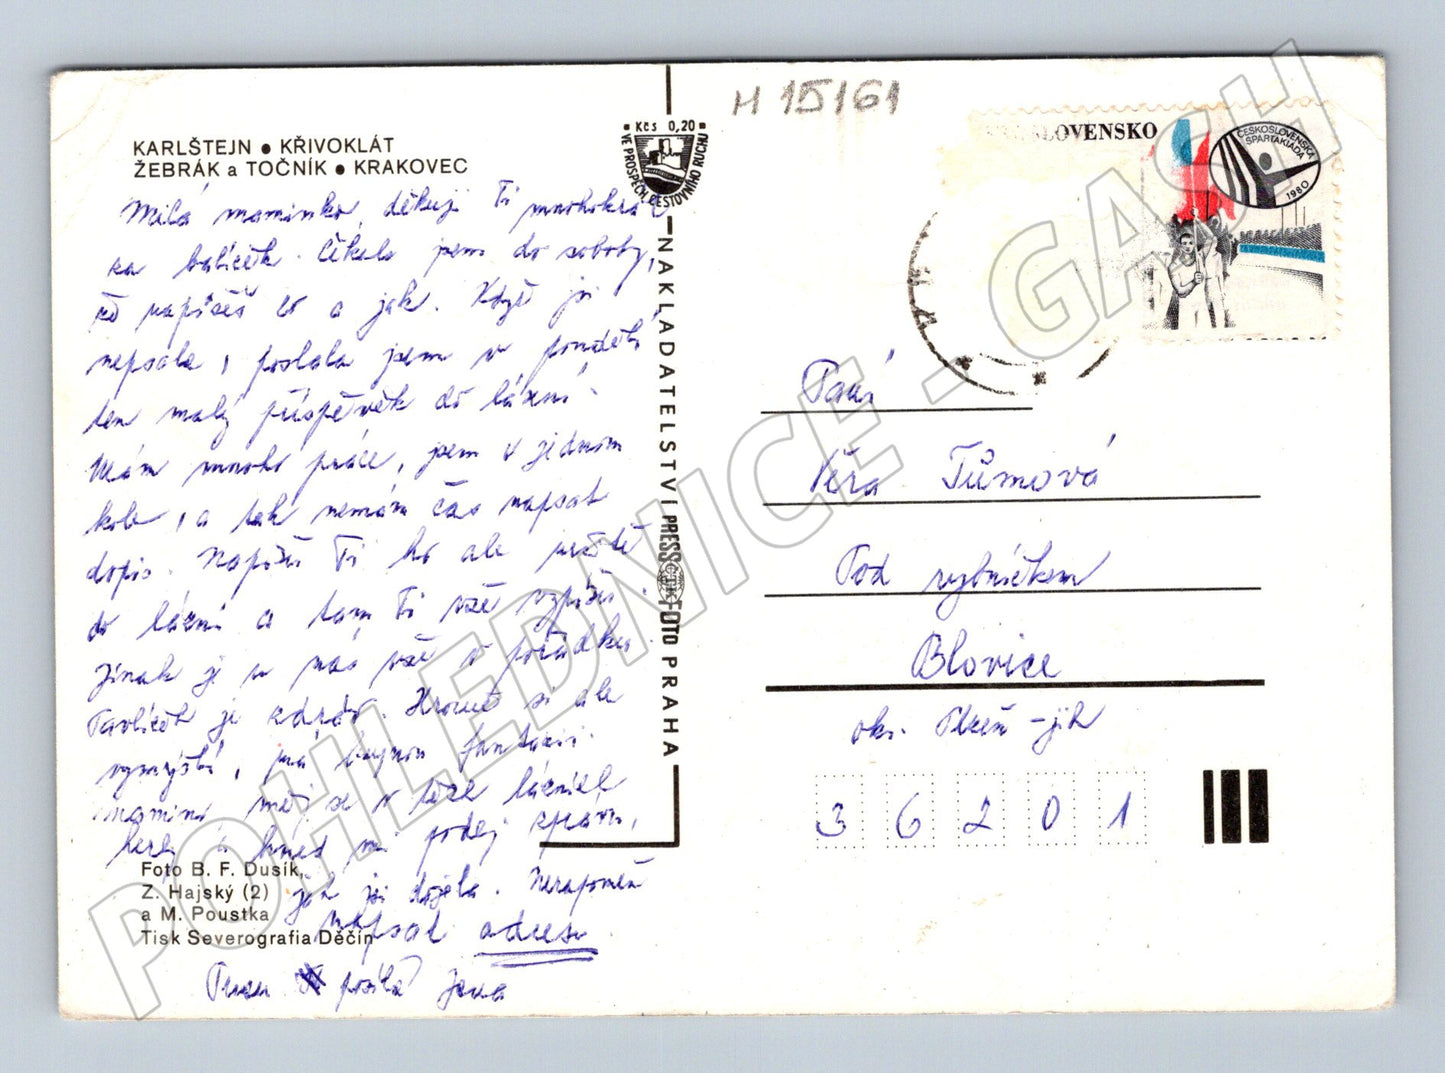 H 15161
KARLŠTEJN • KŘIVOKLÁT
ŽEBRÁK a TOČNÍK • KRAKOVEC
Kčs 0,20
VE PROSPĚCH CESTOVNÍHO RUCHU
SLOVENSKO
ČESKOSLOVENSKÁ SPARTAKIÁDA 1980
Milá maminko, děkuji Ti mnohokrát
za balíček. Čekala jsem do soboty,
až napíšeš co a jak. Když jsi
nepsala, poslala jsem v pondělí
ten malý příspěvek do lázní.
Mám mnoho práce, jsem v jednom
kole, a tak nemám čas napsat
dopis. Napíši Ti ho ale příště
do lázní a tam Ti vše vypíši.
Jinak je u nás vše v pořádku.
Pavlíček je zdráv. Hrozně si ale
vymýšlí, má bujnou fantazii.
Mamini měj se v té
a hned mi podej zprávu,
jak jsi dojela. Nezapomeň
napsat adresu
Pusu posílá Jana
NAKLADATELSTVÍ PRESSFOTO PRAHA
ČTK
Foto B. F. Dusík,
Z. Hajský (2)
a M. Poustka
Tisk Severografia Děčín
Paní
Věra Tůmová
Pod rybníčkem
Blovice
okr. Plzeň-jih
36201
POHLEDNICE - GASH